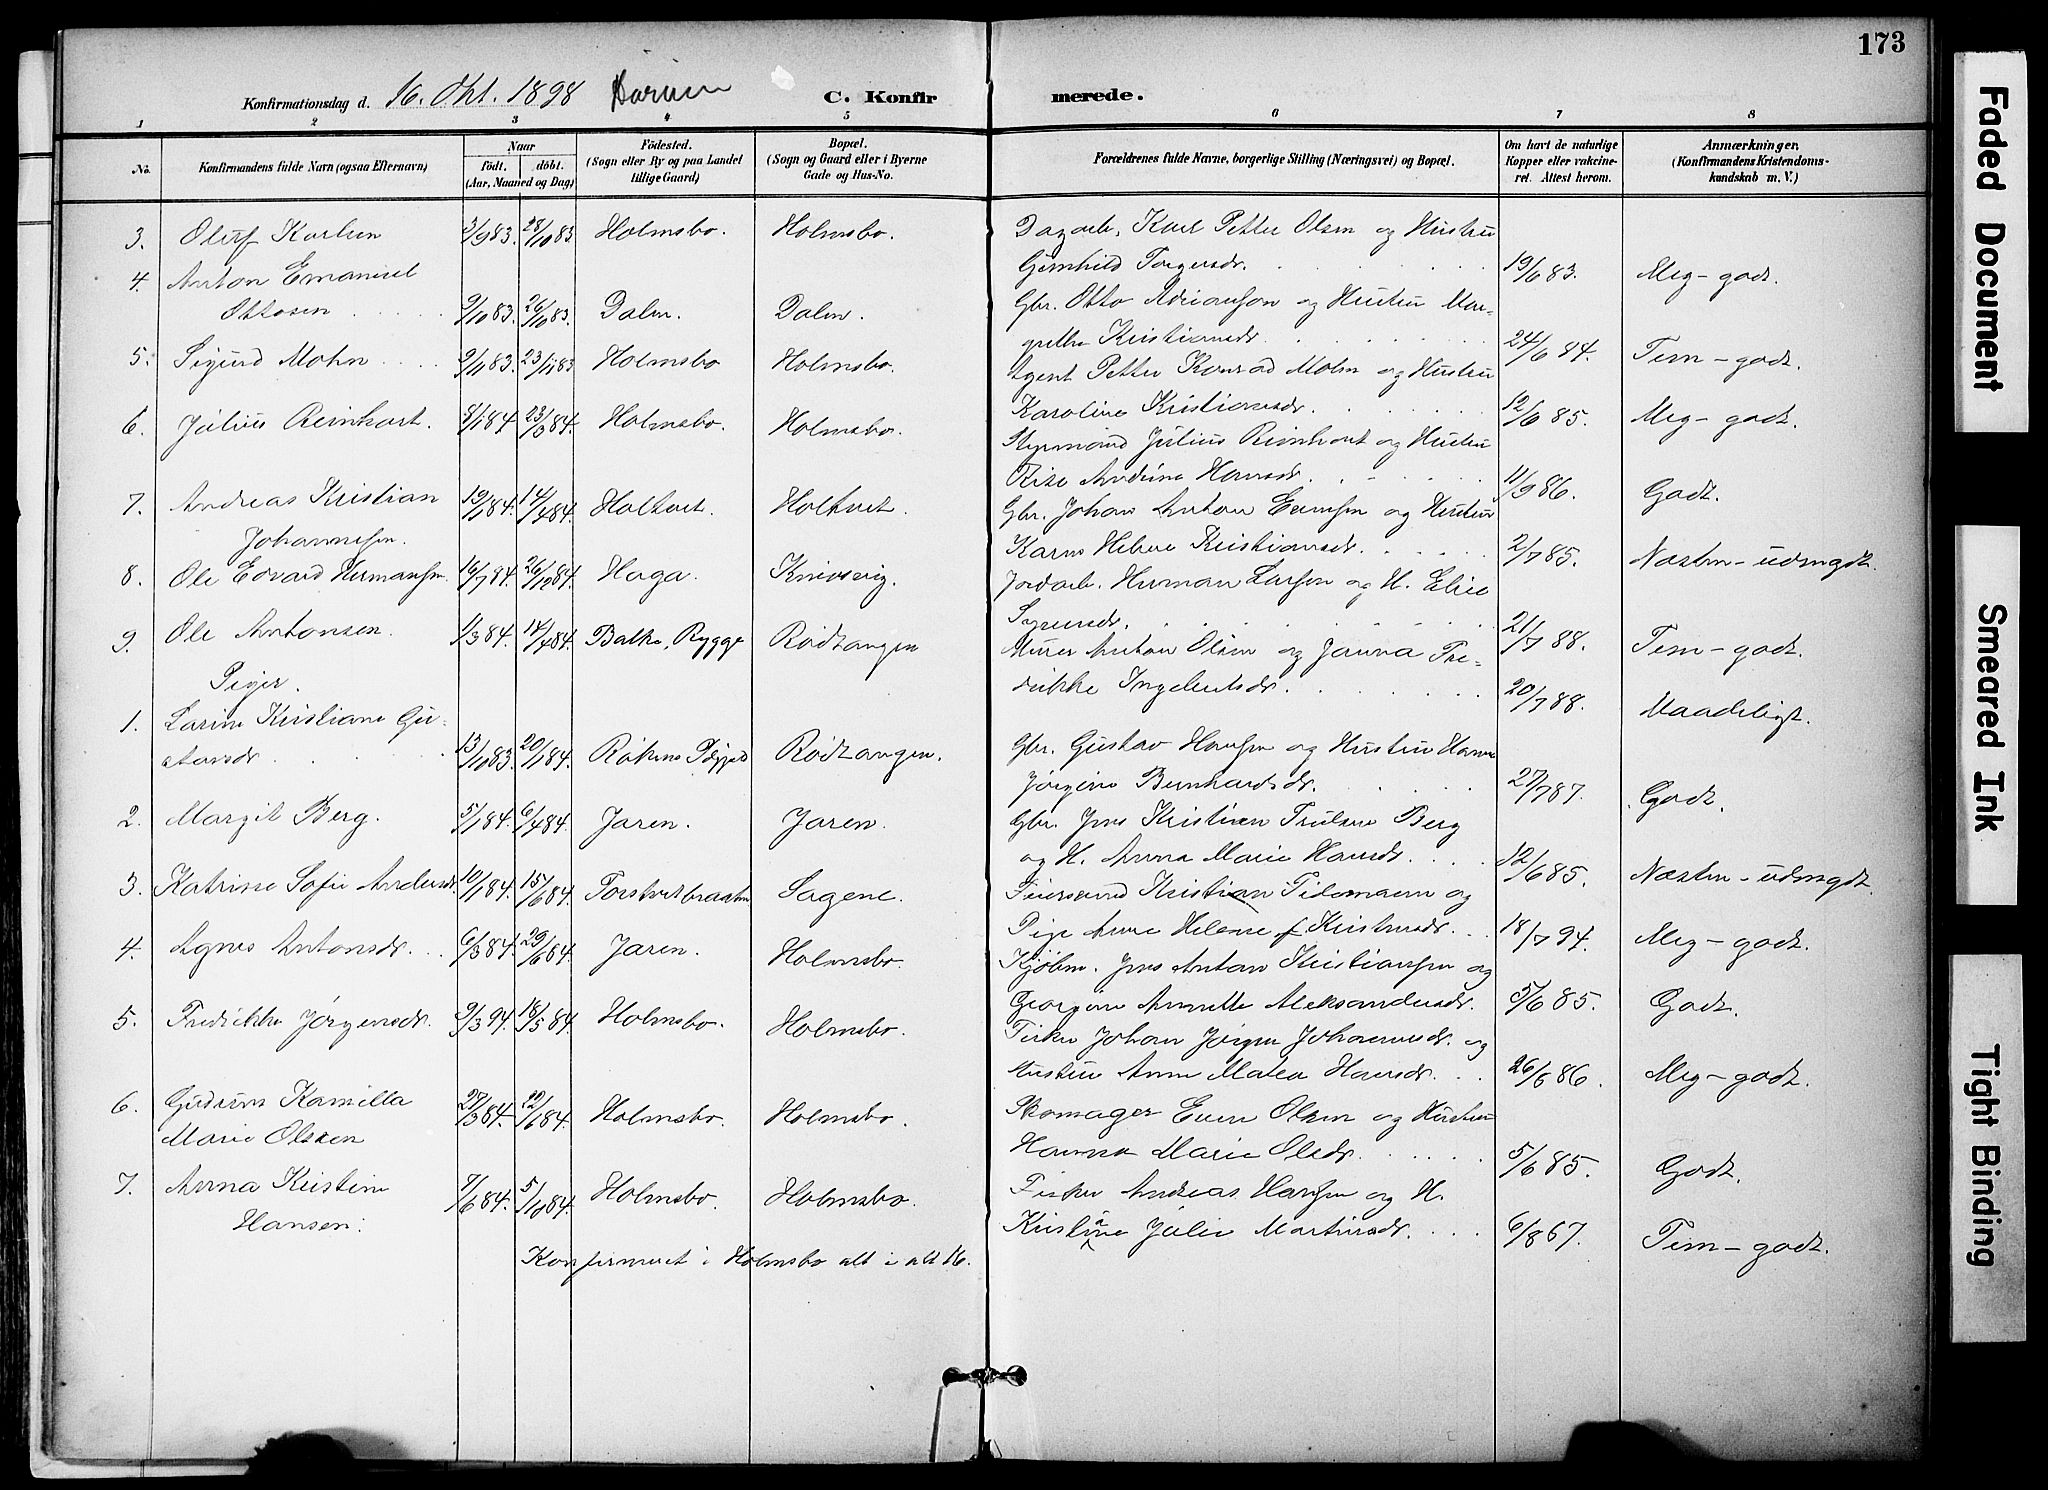 173
Konfirmationsdag d. 16. Okt. 1898
C. Konfirmerede.
1 2 3 4 5 6 7 8
No. Konfirmandens fulde Navn (ogsaa Efternavn) Naar födt. döbt. (Aar, Maaned og Dag) Födested. (Sogn eller By og paa Landet tillige Gaard) Bopæl. (Sogn og Gaard eller i Byerne Gade og Hus-No. Forældrenes fulde Navne, borgerlige Stilling (Næringsvei) og Bopæl. Om havt de naturlige Kopper eller vakcineret. Attest herom. Anmærkninger. (Konfirmandens Kristendomskundskab m. V.)
3. Oluf Karlsen 2/9 83. 28/10 83. Holmsbo. Holmsbo. Dagarb. Karl Petter Olsen og Hustru
Gunhild Torgersdr. 19/6 83. Meg-godt.
4. Anton Emanuel
Ottosen 9/10 83. 26/10 83. Dalen. Dalen. Gbr. Otto Adriansen og Hustru Mar-
grethe Kristiansdr. 24/6 84. Tem-godt.
5. Sigurd Mohn 9/11 83. 23/11 83 Holmsbo Holmsbo. Agent Petter Konrad Mohn og Hustru
Karoline Kristiansdr. 12/6 85. Meg-godt.
6. Julius Reinhart. 8/1 84. 23/3 84. Holmsbo. Holmsbo. Styrmand Julius Reinhart og Hustru
Andrine Hansdr. 11/9 86. Godt.
7. Andreas Kristian
Johannesen. 19/1 84. 14/4 84. Holtvet. Holtvet. Gbr. Johan Anton Evensen og Hustru
Karen Helene Kristiansdr. 2/7 85. Næsten-udmgdt.
8. Ole Edvard Hermansen 16/7 84. 26/12 84. Haga. Knivsvig. Jordarb. Herman Larsen og H. Elise
Syversdr. 21/7 88. Tem-godt.
9. Ole Antonsen. 1/3 84. 14/4 84. Balke, Rygge Rödtangen Murer Anton Olsen og Janna Fre-
drikke Ingebretsdr. 20/7 88. Maadeligt.
Piger.
1. Larine Kristiane Gu-
stavsdr. 13/10 83. 20/1 84. Rödtangen. Gbr. Gustav Hansen og Hustru Hanna
Jörgine Bernhardsdr. 27/7 87. Godt.
2. Margit Berg. 5/1 84. 6/4 84. Jaren. Jaren. Gbr. Jens Kristian Trulsen Berg
og H. Anna Marie Hansdr. 12/6 85. Næsten-udmgdt.
3. Katrine Sofie Andersdr. 10/1 84. 15/6 84. Torstvetbraaten Sagene. Kristian Tidemann og
Pige Anne Helene Kristensdr. 18/7 94. Meg-godt.
4. Agnes Antonsdr. 6/3 84. 29/6 84. Jaren. Holmsbo. Kjöbm. Jens Anton Kristiansen og
Georgine Annette Aleksandersdr. 5/6 85. Godt.
5. Fredrikke Jörgensdr. 9/3 94. 18/5 84. Holmsbo. Holmsbo. Fisker Johan Jörgen Johannesdr. og
Hustru Anne Matea Hansdr. 26/5 86. Meg-godt.
6. Gudrun Kamilla
Marie Olsen 27/3 84. 22/6 84. Holmsbo. Holmsbo. Skomager Even Olsen og Hustru
Hanna Marie Olsdr. 5/6 85. Godt.
7. Anna Kristine
Hansen. 7/6 84. 5/10 84. Holmsbo. Holmsbo. Fisker Andreas Hansen og H.
Kristiane Julie Martinsdr. 6/8 67. Tem-godt.
Konfirmeret i Holmsbo alt i alt 16.
Faded Document
Smeared Ink
Tight Binding